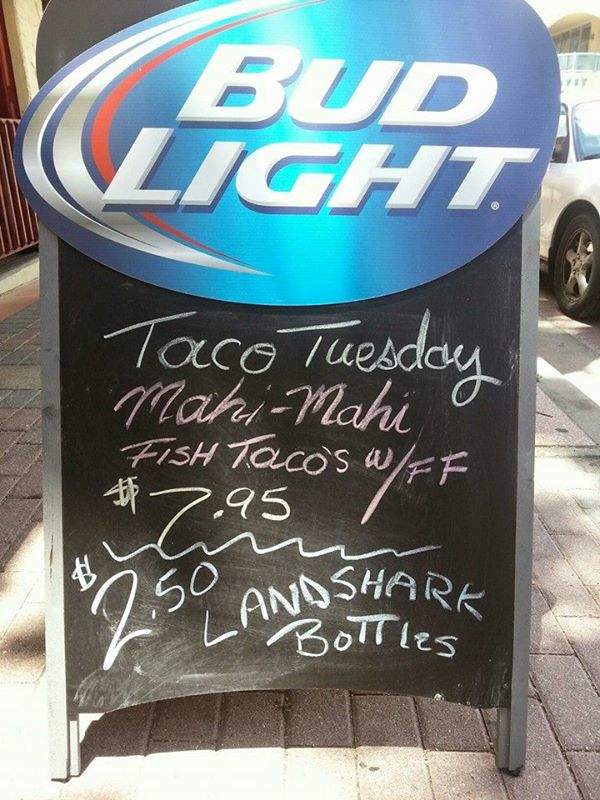 BUD
LIGHT
Taco Tuesday
Mahi-Mahi
FISH Taco's w/FF
$7.95
$2.50 LANDSHARK
BoTTles